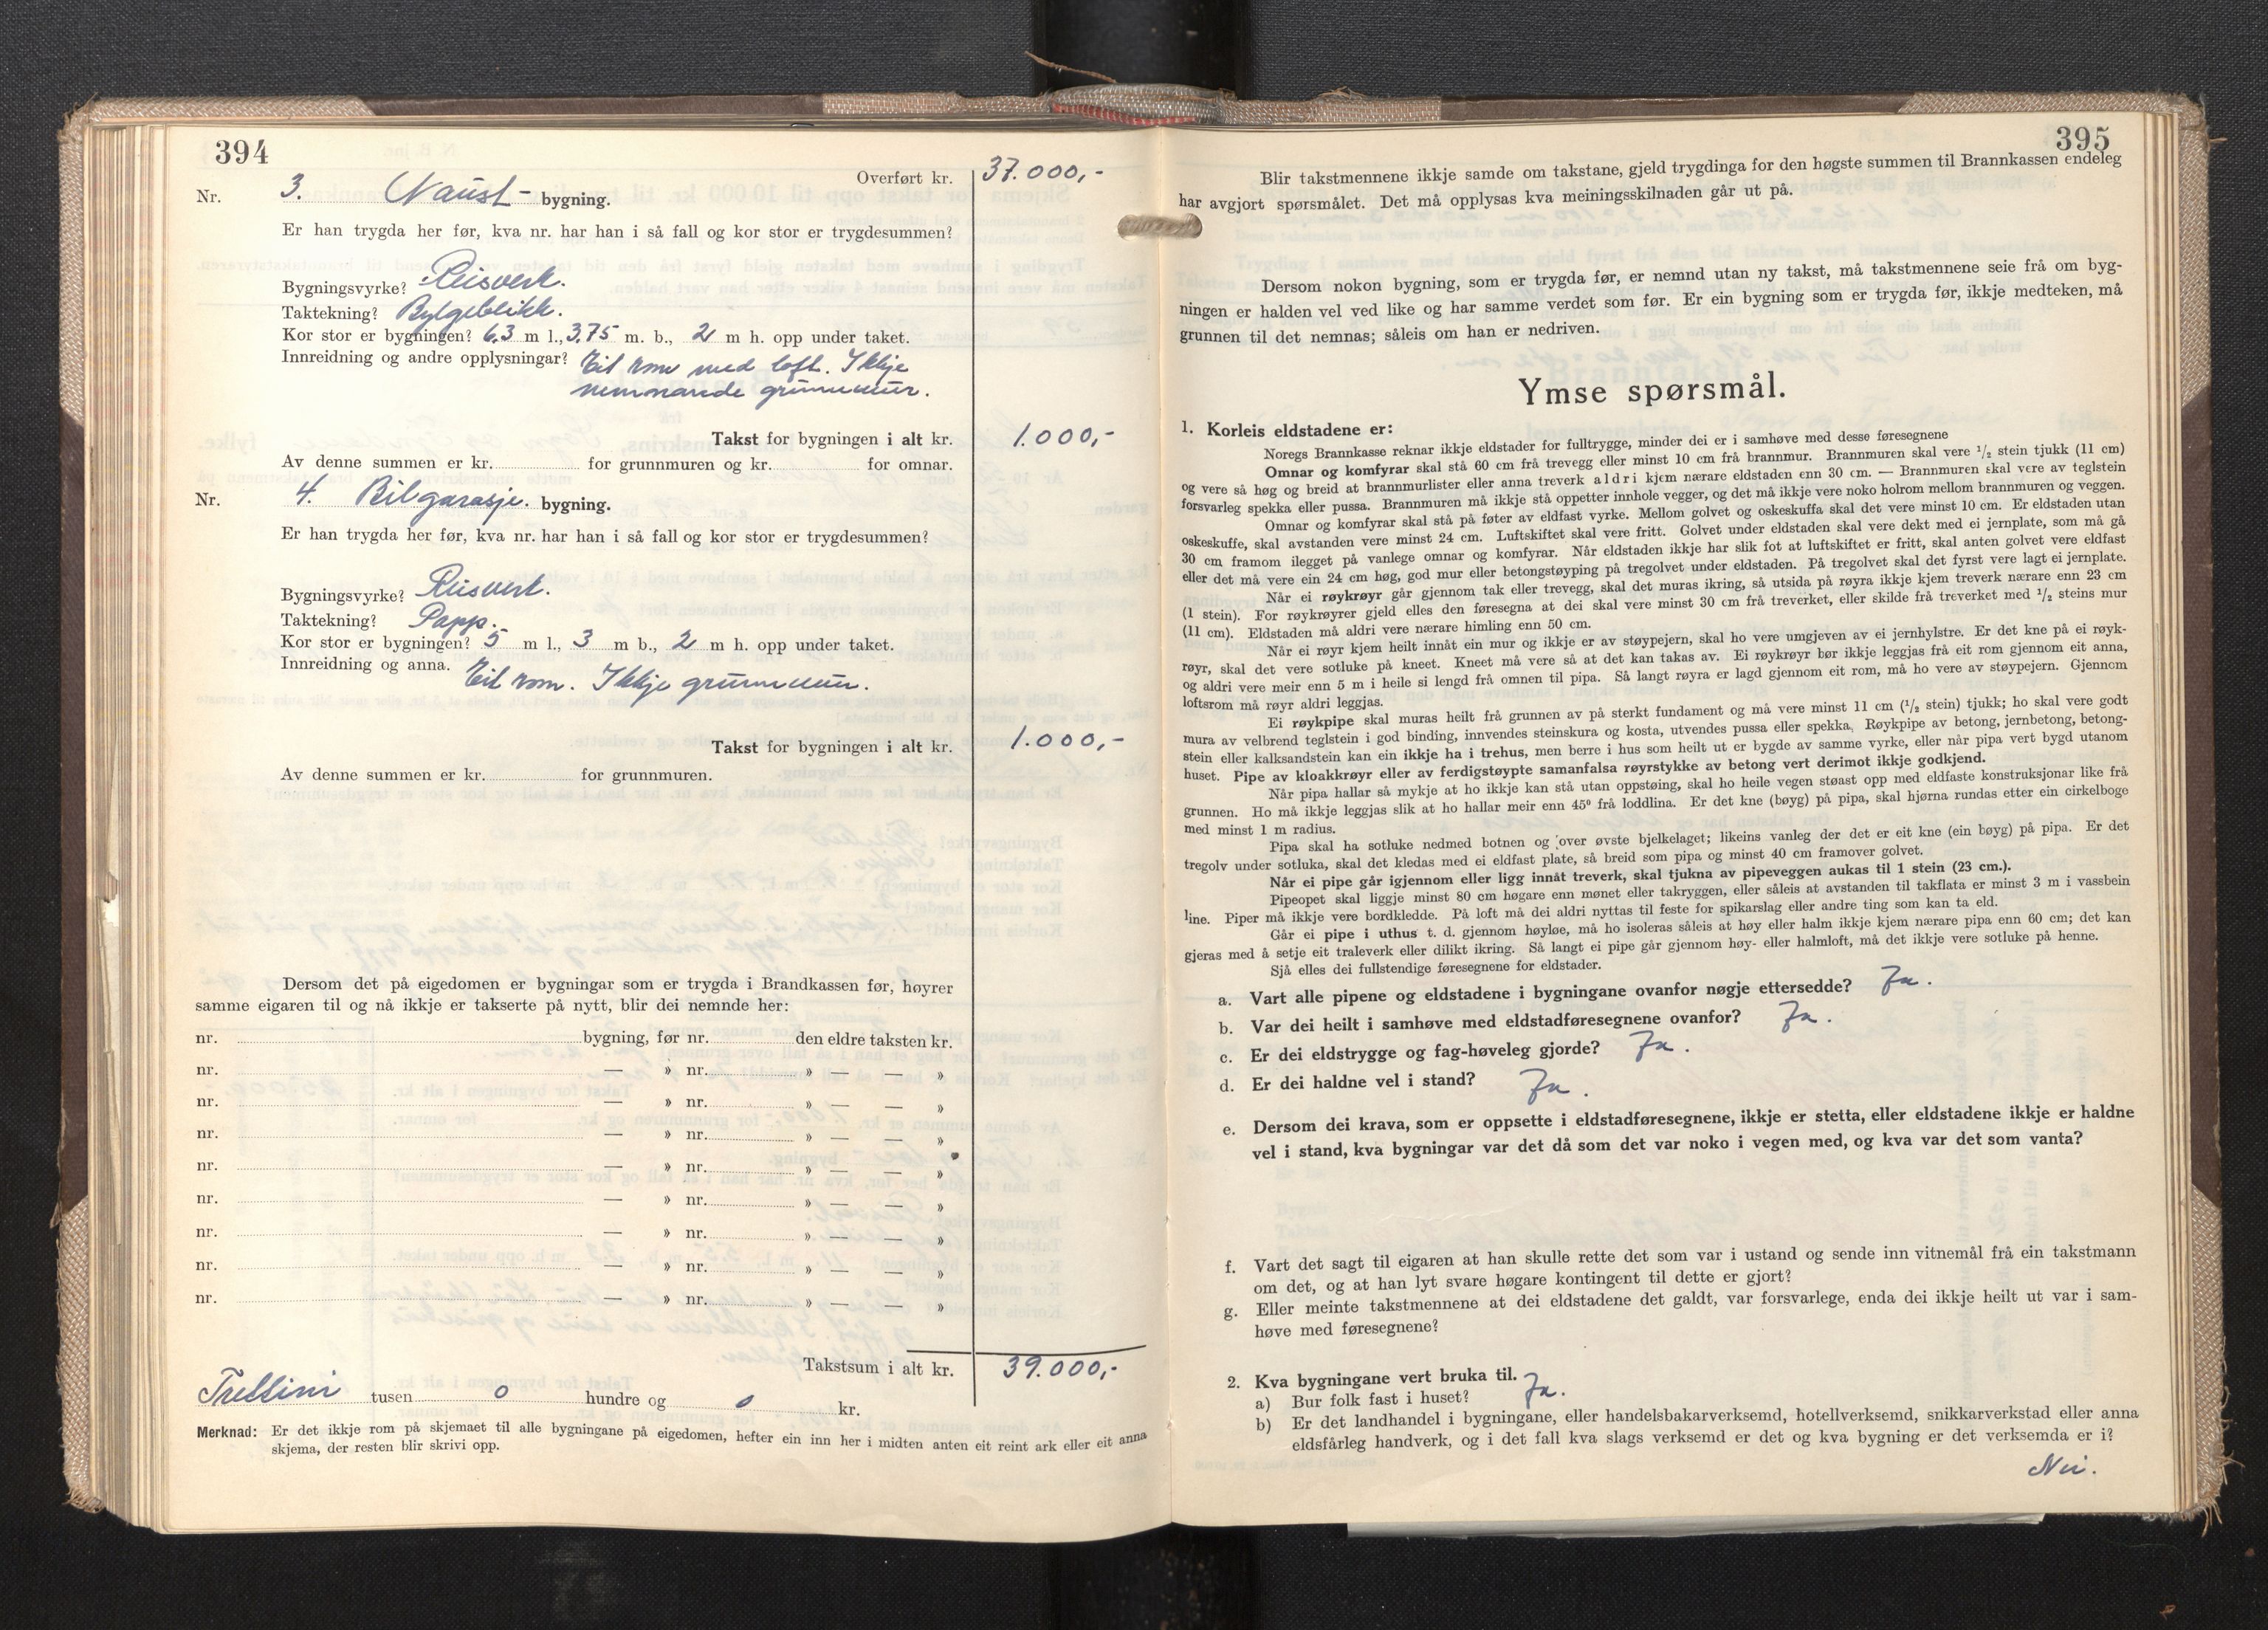 394
Overført kr. 37.000,-
Nr. 3. Naust- bygning.
Er han trygda her før, kva nr. har han i så fall og kor stor er trygdesummen?
Bygningsvyrke? Reisverk.
Taktekning? Bylgeblikk.
Kor stor er bygningen? 6,3 m l., 3,75 m. b., 2 m h. opp under taket.
Innreidning og andre opplysningar? Eit rom med loft. Ikkje
nemnande grunnmur.
Takst for bygningen i alt kr. 1.000,-
Av denne summen er kr. for grunnmuren og kr. for omnar.
Nr. 4. Bilgarasje. bygning.
Er han trygda her før, kva nr. har han i så fall og kor stor er trygdesummen?
Bygningsvyrke? Reisverk.
Taktekning? Papp.
Kor stor er bygningen? 5 m l., 3 m b., 2 m h. opp under taket.
Innreidning og anna. Eit rom. Ikkje grunnmur.
Takst for bygningen i alt kr. 1.000,-
Av denne summen er kr. for grunnmuren.
Dersom det på eigedomen er bygningar som er trygda i Brandkassen før, høyrer
samme eigaren til og nå ikkje er takserte på nytt, blir dei nemnde her:
nr. bygning, før nr. den eldre taksten kr.
nr. — » nr. » — — »
nr. — » nr. » — — »
nr. — » nr. » — — »
nr. — » nr. » — — »
nr. — » nr. » — — »
nr. — » nr. » — — »
nr. — » nr. » — — »
nr. — » nr. » — — »
Takstsum i alt kr. 39.000,-
Trettini tusen 0 hundre og 0 kr.
Merknad: Er det ikkje rom på skjemaet til alle bygningane på eigedomen, hefter ein inn her i midten anten eit reint ark eller eit anna
skjema, der resten blir skrivi opp.
395
Blir takstmennene ikkje samde om takstane, gjeld trygdinga for den høgste summen til Brannkassen endeleg
har avgjort spørsmålet. Det må opplysas kva meiningsskilnaden går ut på.
Dersom nokon bygning, som er trygda før, er nemnd utan ny takst, må takstmennene seie frå om byg-
ningen er halden vel ved like og har samme verdet som før. Er ein bygning som er trygda før, ikkje medteken, må
grunnen til det nemnas; såleis om han er nedriven.
Ymse spørsmål.
1. Korleis eldstadene er:
Noregs Brannkasse reknar ikkje eldstader for fulltrygge, minder dei er i samhøve med desse føresegnene
Omnar og komfyrar skal stå 60 cm frå trevegg eller minst 10 cm frå brannmur. Brannmuren skal vere ½ stein tjukk (11 cm)
og vere så høg og breid at brannmurlister eller anna treverk aldri kjem nærare eldstaden enn 30 cm. — Brannmuren skal vere av teglstein
forsvarleg spekka eller pussa. Brannmuren må ikkje stå oppetter innhole vegger, og det må ikkje vere noko holrom mellom brannmuren og veggen.
Omnar og komfyrar skal stå på føter av eldfast vyrke. Mellom golvet og oskeskuffa skal det vere minst 10 cm. Er eldstaden utan
oskeskuffe, skal avstanden vere minst 24 cm. Luftskiftet skal vere fritt. Golvet under eldstaden skal vere dekt med ei jernplate, som må gå
30 cm framom ilegget på vanlege omnar og komfyrar. Når eldstaden ikkje har slik fot at luftskiftet er fritt, skal anten golvet vere eldfast
eller det må vere ein 24 cm høg, god mur eller betongstøyping på tregolvet under eldstaden. På tregolvet skal det fyrst vere lagt ei jernplate.
Når ei røykrøyr går gjennom tak eller trevegg, skal det muras ikring, så utsida på røyra ikkje kjem treverk nærare enn 23 cm
(1 stein). For røykrøyrer gjeld elles den føresegna at dei skal vere minst 30 cm frå treverket, eller skilde frå treverket med ½ steins mur
(11 cm). Eldstaden må aldri vere nærare himling enn 50 cm.
Når ei røyr kjem heilt innåt ein mur og ikkje er av støypejern, skal ho vere umgjeven av ei jernhylstre. Er det kne på ei røyk-
røyr, skal det vere sotluke på kneet. Kneet må vere så at det kan takas av. Ei røykrøyr bør ikkje leggjas frå eit rom gjennom eit anna,
og aldri vere meir enn 5 m i heile si lengd frå omnen til pipa. Så langt røyra er lagd gjennom eit rom, må ho vere av støypejern. Gjennom
loftsrom må røyr aldri leggjas.
Ei røykpipe skal muras heilt frå grunnen av på sterkt fundament og må vere minst 11 cm (½ stein) tjukk; ho skal vere godt
mura av velbrend teglstein i god binding, innvendes steinskura og kosta, utvendes pussa eller spekka. Røykpipe av betong, jernbetong, betong-
stein eller kalksandstein kan ein ikkje ha i trehus, men berre i hus som heilt ut er bygde av samme vyrke, eller når pipa vert bygd utanom
huset. Pipe av kloakkrøyr eller av ferdigstøypte samanfalsa røyrstykke av betong vert derimot ikkje godkjend.
Når pipa hallar så mykje at ho ikkje kan stå utan oppstøing, skal ho heile vegen støast opp med eldfaste konstruksjonar like frå
grunnen. Ho må ikkje leggjas slik at ho hallar meir enn 45° frå loddlina. Er det kne (bøyg) på pipa, skal hjørna rundas etter ein cirkelboge
med minst 1 m radius.
Pipa skal ha sotluke nedmed botnen og over øvste bjelkelaget; likeins vanleg der det er eit kne (ein bøyg) på pipa. Er det
tregolv under sotluka, skal det kledas med ei eldfast plate, så breid som pipa og minst 40 cm framover golvet.
Når ei pipe går igjennom eller ligg innåt treverk, skal tjukna av pipeveggen aukas til 1 stein (23 cm.).
Pipeopet skal liggje minst 80 cm høgare enn mønet eller takryggen, eller såleis at avstanden til takflata er minst 3 m i vassbein
line. Piper må ikkje vere bordkledde. På loft må dei aldri nyttas til feste for spikarslag eller andre ting som kan ta eld.
Går ei pipe i uthus t. d. gjennom høyløe, må ho isoleras såleis at høy eller halm ikkje kjem nærare pipa enn 60 cm; det kan
gjeras med å setje eit traleverk eller dilikt ikring. Så langt ei pipe går gjennom høy- eller halmloft, må det ikkje vere sotluke på henne.
Sjå elles dei fullstendige føresegnene for eldstader.
a. Vart alle pipene og eldstadene i bygningane ovanfor nøgje ettersedde? Ja.
b. Var dei heilt i samhøve med eldstadføresegnene ovanfor? Ja.
c. Er dei eldstrygge og fag-høveleg gjorde? Ja.
d. Er dei haldne vel i stand? Ja.
e. Dersom dei krava, som er oppsette i eldstadføresegnene, ikkje er stetta, eller eldstadene ikkje er haldne
vel i stand, kva bygningar var det då som det var noko i vegen med, og kva var det som vanta?
f. Vart det sagt til eigaren at han skulle rette det som var i ustand og sende inn vitnemål frå ein takstmann
om det, og at han lyt svare høgare kontingent til dette er gjort?
g. Eller meinte takstmennene at dei eldstadene det galdt, var forsvarlege, enda dei ikkje heilt ut var i sam-
høve med føresegnene?
2. Kva bygningane vert bruka til.
a) Bur folk fast i huset? Ja.
b) Er det landhandel i bygningane, eller handelsbakarverksemd, hotellverksemd, snikkarverkstad eller anna
eldsfårleg handverk, og i det fall kva slags verksemd er det og kva bygning er det verksemda er i?
Nei.